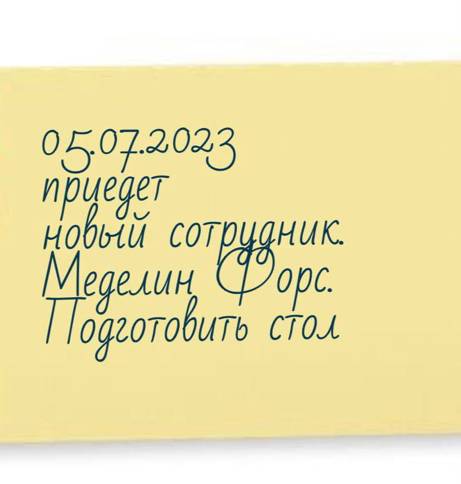 05.07.2023
приедет
новый сотрудник.
Меделин Форс.
Подготовить стол